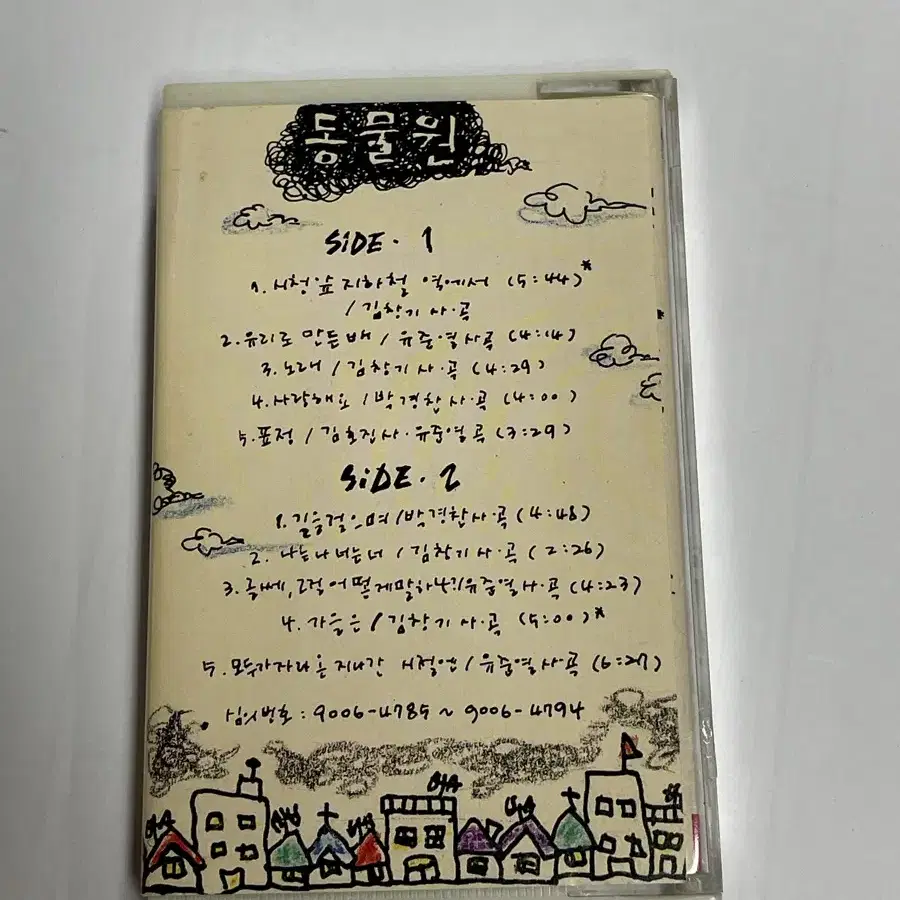 동물원
SiDE. 1
1. 시청앞 지하철 역에서 (5:44)*
/ 김창기 사·곡
2. 유리로 만든배 / 유준열 사·곡 (4:14)
3. 노래 / 김창기 사·곡 (4:29)
4. 사랑해요 / 박경찬 사·곡 (4:00)
5. 표정 / 김호진 사·유준열 곡 (3:29)
SiDE. 2
1. 길을걸으며 / 박경찬 사·곡 (4:48)
2. 나는나 너는너 / 김창기 사·곡 (2:26)
3. 글쎄, 그걸 어떻게말하나?/유준열 사·곡 (4:23)
4. 가을은 / 김창기 사·곡 (5:00)*
5. 모두가 자라온 지나간 시절엔 / 유준열 사·곡 (6:27)
. 심의번호 : 9006-4785 ~ 9006-4794